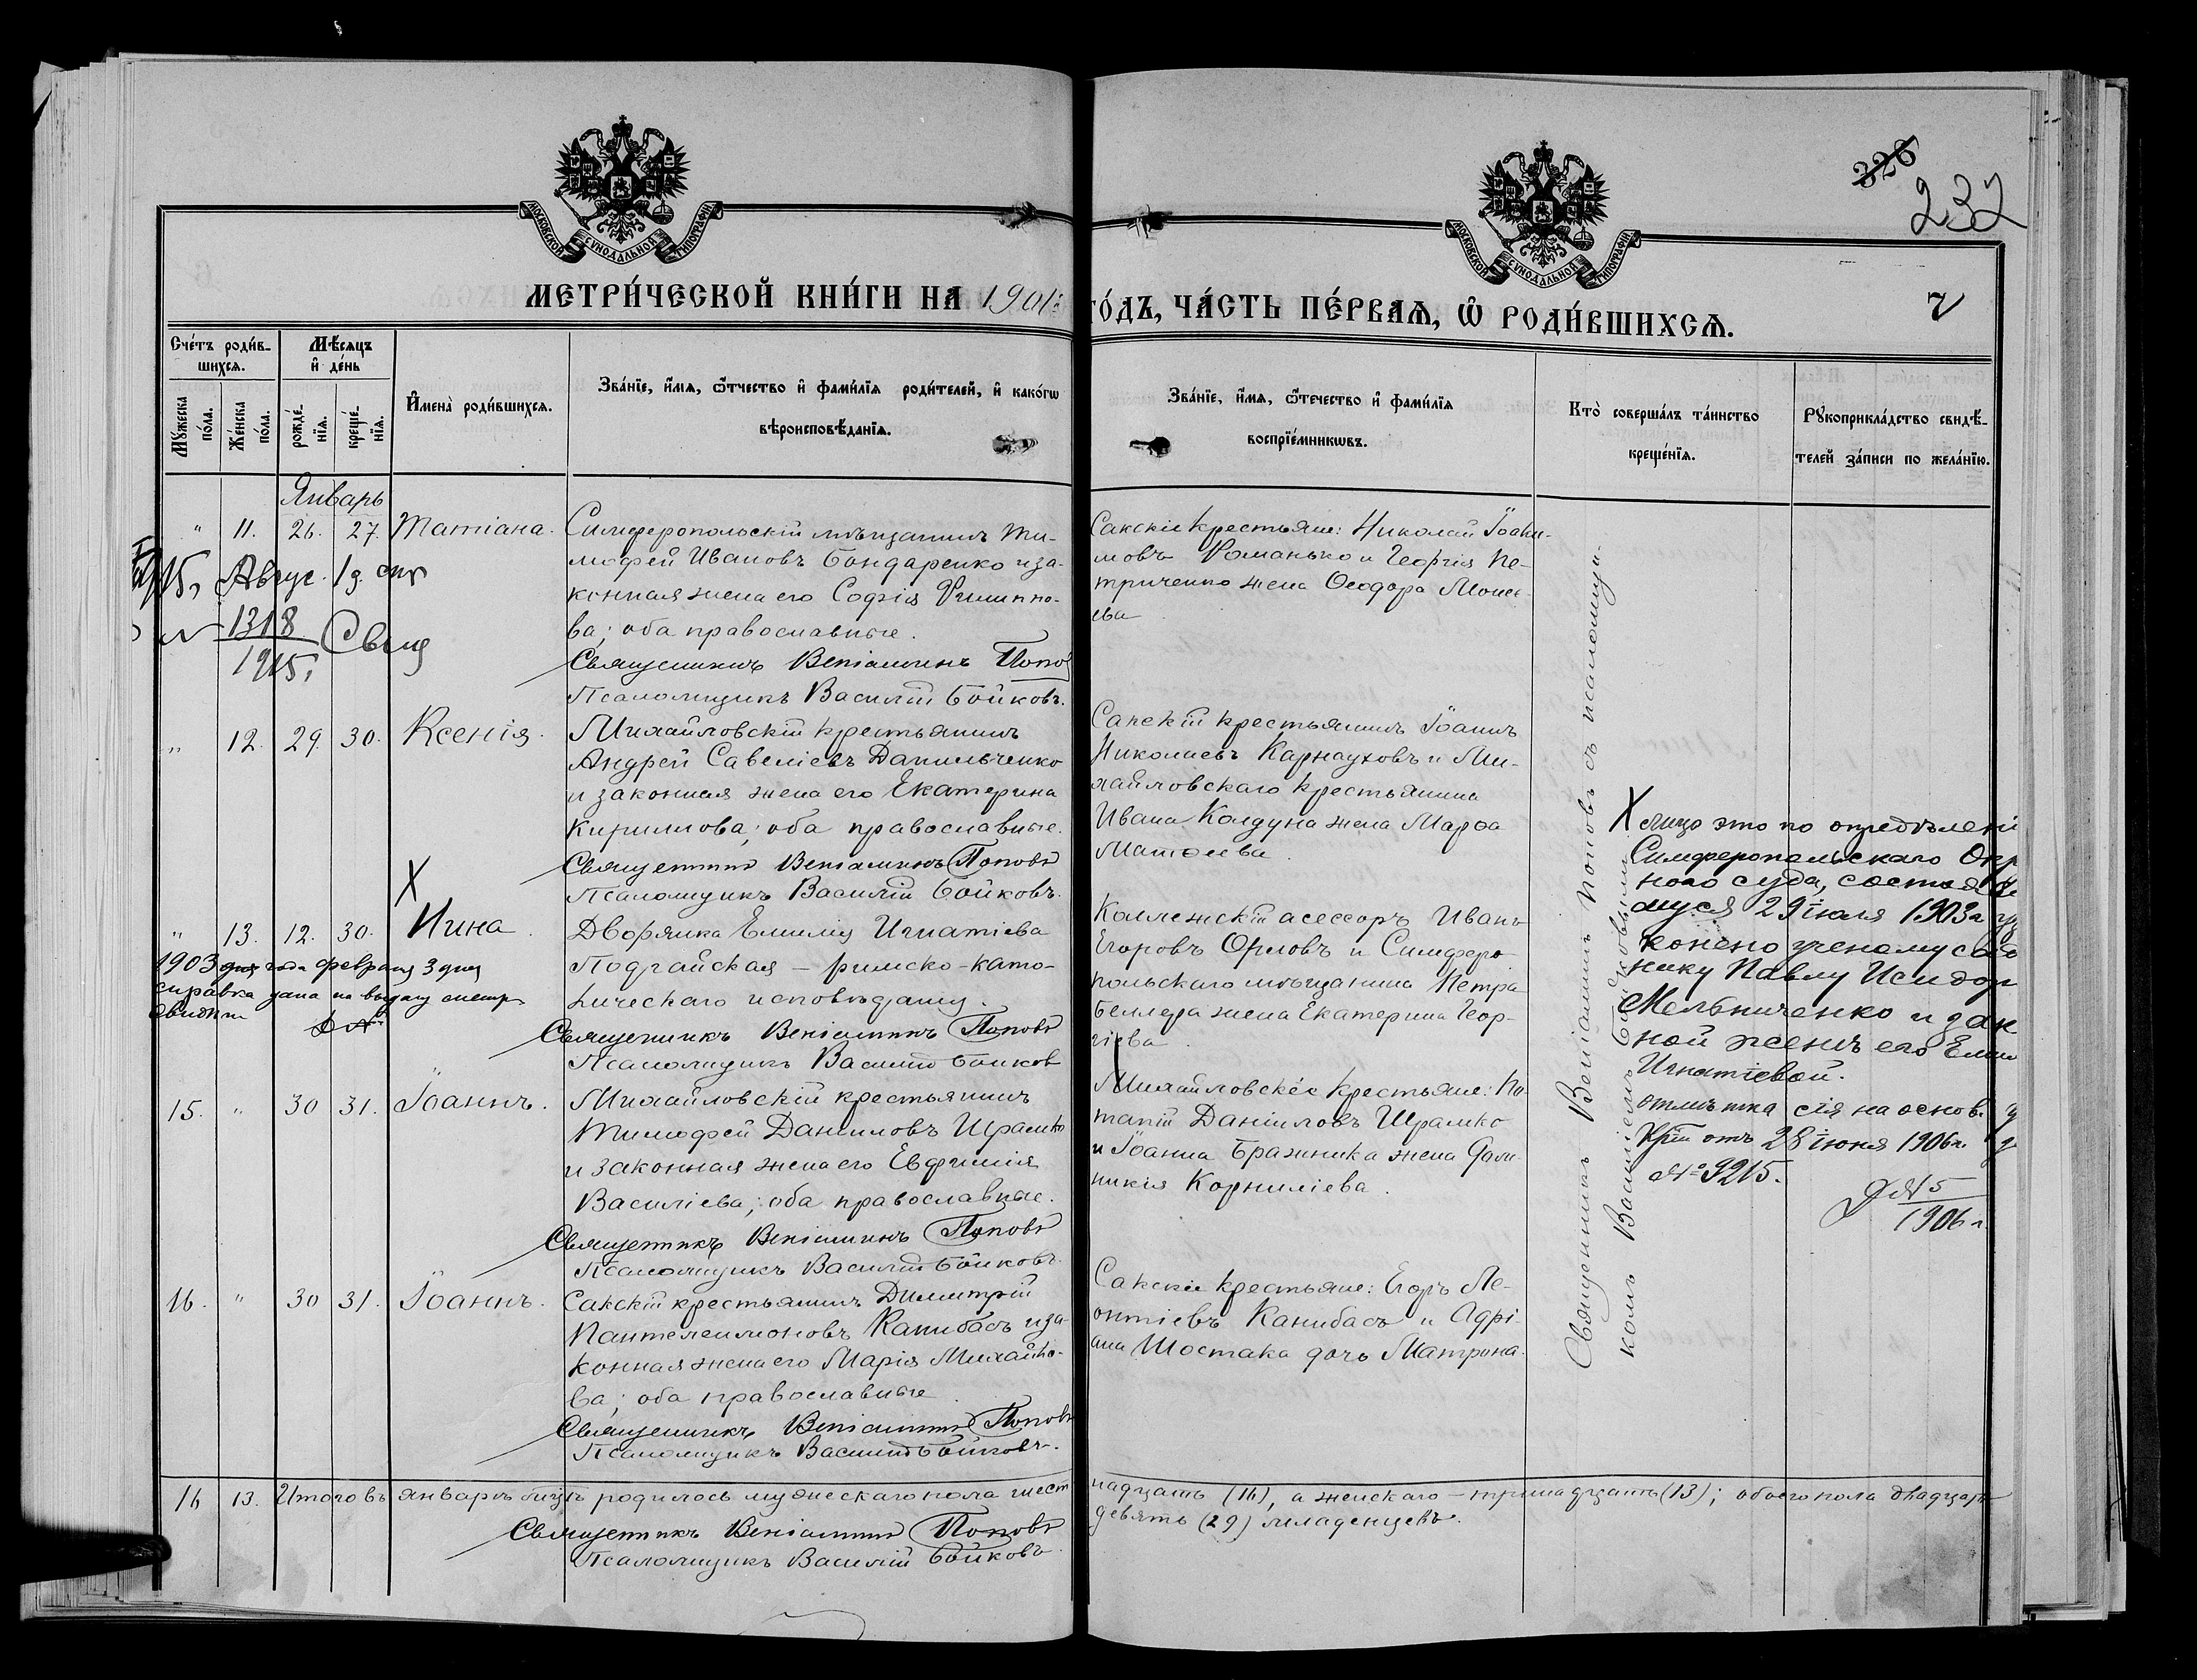 326
232
7
МОСКОВСКОЙ СѴНОДАЛЬНОЙ ТИПОГРАФІИ
МОСКОВСКОЙ СѴНОДАЛЬНОЙ ТИПОГРАФІИ
МЕТРИ́ЧЕСКОЙ КНИ́ГИ НА 1901
ГО́ДЪ, ЧА́СТЬ ПЕ́РВАѦ, Ѿ РОДИ́ВШИХСѦ.
Сче́тъ роди́в-
шихся.
Мѣсяцъ
и де́нь
Мꙋжеска
по́ла.
Же́нска
по́ла.
рожде́-
нїя.
креще́-
нїя.
Имена̀ роди́вшихся.
Зва́нїе, и́мя, ѻ́тчество и фами́лїя роди́телей, и како́гѡ
вѣроисповѣ́данїя.
Зва́нїе, и́мя, ѻ́течество и фами́лїя
воспрїе́мникѡвъ.
Кто̀ соверша́лъ та́инство
креще́нїя.
Рꙋкоприкла́дство свидѣ́-
телей за́писи по жела́нїю.
Январь
" 11. 26. 27. Татіана.
Симферопольскій мѣщанинъ Ти-
мофей Ивановъ Бондаренко и за-
конная жена его Софія Филиппо-
ва; оба православные.
Священникъ Веніаминъ Поповъ
Псаломщикъ Василій Бойковъ.
Сакскіе крестьяне: Николай Іоан-
новъ Романько и Георгія Пе-
триченко жена Ѳеодора Моисе-
ева
15, Авгус. 19.
1318
1915,
" 12. 29. 30. Ксенія.
Михайловскій крестьянинъ
Андрей Савеліевъ Данильченко
и законная жена его Екатерина
Кириллова; оба православные.
Священникъ Веніаминъ Поповъ
Псаломщикъ Василій Бойковъ.
Сакскій крестьянинъ Іоаннъ
Николаевъ Карнауховъ и Ми-
хайловскаго крестьянина
Ивана Колдуна жена Марѳа
Матѳеева.
X
" 13. 12. 30. Нина.
Дворянка Емилія Игнатіева
Подгайская — римско-като-
лическаго исповѣданія.
Священникъ Веніаминъ Поповъ
Псаломщикъ Василій Бойковъ
1903 года февраля 3 дня
справка дана на выдачу метр.
Коллежскій асессоръ Иванъ
Егоровъ Орловъ и Симферо-
польскаго мѣщанина Петра
Беллера жена Екатерина Геор-
гіева.
X Лицо это по опредѣлені
Симферопольскаго Окр
наго суда, состояв
шуся 29 іюля 1903 г. уз
конено ученому са
нику Павлу Исидор
Мельниченко и зак
ной женѣ его Емил
Игнатіевой.
отмѣтка сія на основ.
отъ 28 іюня 1906 г.
№ 9215.
Д № 5
1906 г.
15. " 30 31. Іоаннъ.
Михайловскій крестьянинъ
Тимофей Даниловъ Шрамко
и законная жена его Евфимія
Василіева; оба православные.
Священникъ Веніаминъ Поповъ
Псаломщикъ Василій Бойковъ.
Михайловскіе крестьяне: По-
тапій Даніиловъ Шрамко
и Іоанна Бражника жена Дом-
никія Корниліева.
16. " 30 31. Іоаннъ.
Сакскій крестьянинъ Димитрій
Пантелеимоновъ Канибасъ и за-
конная жена его Марія Михайло-
ва; оба православные.
Священникъ Веніаминъ Поповъ
Псаломщикъ Василій Бойковъ.
Сакскіе крестьяне: Егоръ Ле-
онтіевъ Канибасъ и Адрі-
ана Шостака дочь Матрона.
Священникъ Веніаминъ Поповъ съ псаломщи-
комъ Василіемъ Бойковымъ
16 13. Итого въ январѣ м-цѣ родилось мужескаго пола шест
надцать (16), а женскаго — тринадцать (13); обоего пола двадцать
девять (29) младенцевъ.
Священникъ Веніаминъ Поповъ
Псаломщикъ Василій Бойковъ